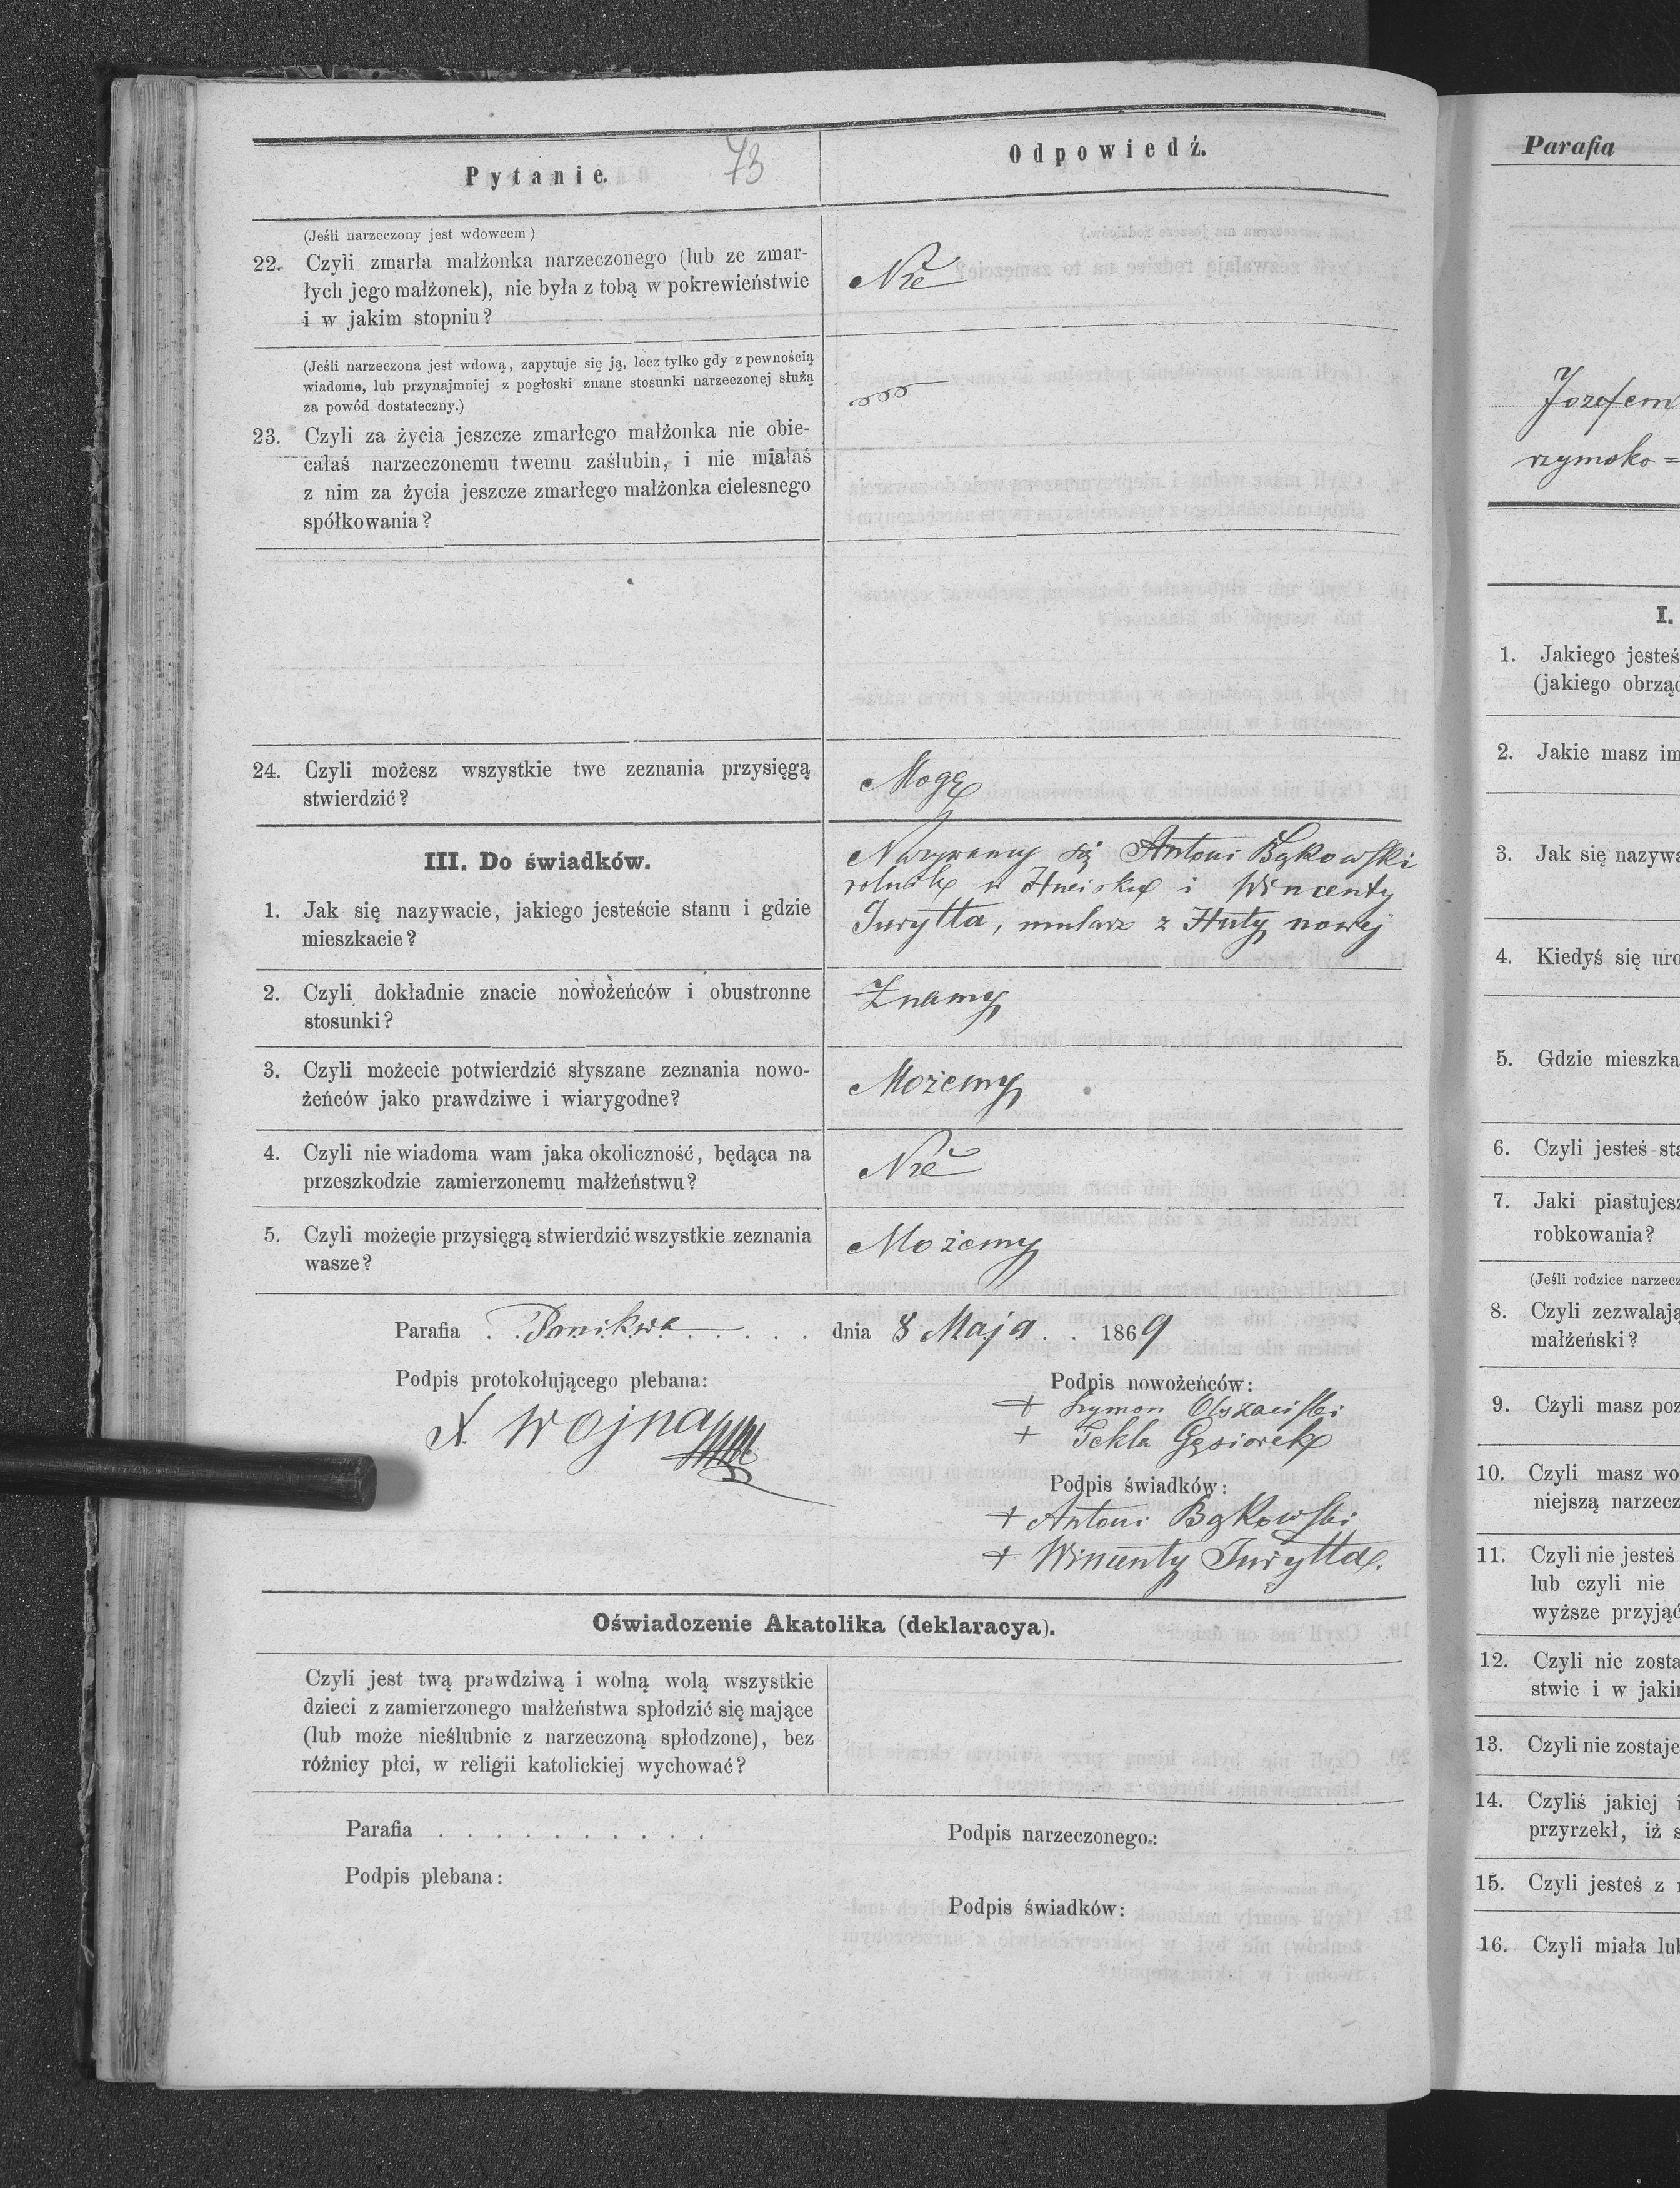 73
Pytanie.
Odpowiedź.
(Jeśli narzeczony jest wdowcem)
22. Czyli zmarła małżonka narzeczonego (lub ze zmar-
łych jego małżonek), nie była z tobą w pokrewieństwie
i w jakim stopniu?
Nie
(Jeśli narzeczona jest wdową, zapytuje się ją, lecz tylko gdy z pewnością
wiadome, lub przynajmniej z pogłoski znane stosunki narzeczonej służą
za powód dostateczny.)
23. Czyli za życia jeszcze zmarłego małżonka nie obie-
całaś narzeczonemu twemu zaślubin, i nie miałaś
z nim za życia jeszcze zmarłego małżonka cielesnego
spółkowania?
24. Czyli możesz wszystkie twe zeznania przysięgą
stwierdzić?
Mogę
III. Do świadków.
1. Jak się nazywacie, jakiego jesteście stanu i gdzie
mieszkacie?
Nazywamy się Antoni Bąkowski
rolnik w Hucisku i Wincenty
Turytta, mularz z Huty nowej
2. Czyli dokładnie znacie nowożeńców i obustronne
stosunki?
Znamy
3. Czyli możecie potwierdzić słyszane zeznania nowo-
żeńców jako prawdziwe i wiarygodne?
Możemy
4. Czyli nie wiadoma wam jaka okoliczność, będąca na
przeszkodzie zamierzonemu małżeństwu?
Nie
5. Czyli możecie przysięgą stwierdzić wszystkie zeznania
wasze?
Możemy
Parafia Ponikwa dnia 8 Maja 1869
Podpis protokołującego plebana:
X. Wojna
Podpis nowożeńców:
+ Szymon
+ Tekla Gąsiorek
Podpis świadków:
+ Antoni Bąkowski
+ Wincenty Turytta.
Oświadczenie Akatolika (deklaracya).
Czyli jest twą prawdziwą i wolną wolą wszystkie
dzieci z zamierzonego małżeństwa spłodzić się mające
(lub może nieślubnie z narzeczoną spłodzone), bez
różnicy płci, w religii katolickiej wychować?
Parafia
Podpis plebana:
Podpis narzeczonego:
Podpis świadków:
Parafia
Józefem
rzymsko=
I.
1. Jakiego jesteś
(jakiego obrząd
2. Jakie masz im
3. Jak się nazywa
4. Kiedyś się uro
5. Gdzie mieszka
6. Czyli jesteś sta
7. Jaki piastujesz
robkowania?
(Jeśli rodzice narzecz
8. Czyli zezwalają
małżeński?
9. Czyli masz poz
10. Czyli masz wo
niejszą narzecz
11. Czyli nie jesteś
lub czyli nie
wyższe przyjąć
12. Czyli nie zosta
stwie i w jakim
13. Czyli nie zostaje
14. Czyliś jakiej i
przyrzekł, iż s
15. Czyli jesteś z
16. Czyli miała lub